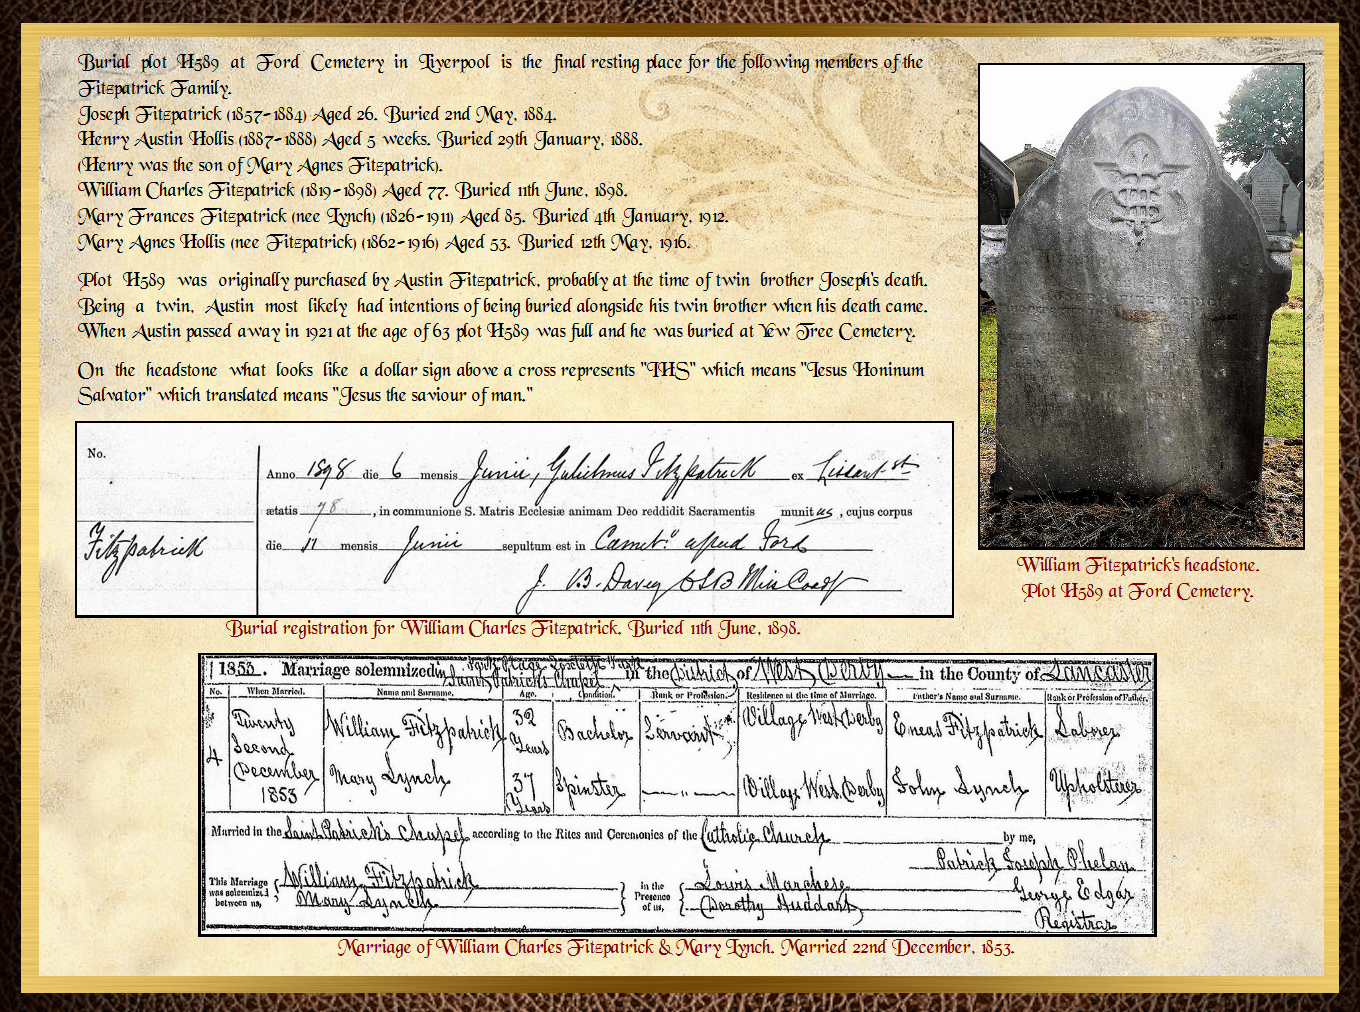 Burial plot H589 at Ford Cemetery in Liverpool is the final resting place for the following members of the
Fitzpatrick Family.
Joseph Fitzpatrick (1857-1884) Aged 26. Buried 2nd May, 1884.
Henry Austin Hollis (1887-1888) Aged 5 weeks. Buried 29th January, 1888.
(Henry was the son of Mary Agnes Fitzpatrick).
William Charles Fitzpatrick (1819-1898) Aged 77. Buried 11th June, 1898.
Mary Frances Fitzpatrick (nee Lynch) (1826-1911) Aged 85. Buried 4th January, 1912.
Mary Agnes Hollis (nee Fitzpatrick) (1862-1916) Aged 53. Buried 12th May, 1916.
Plot H589 was originally purchased by Austin Fitzpatrick, probably at the time of twin brother Joseph's death.
Being a twin, Austin most likely had intentions of being buried alongside his twin brother when his death came.
When Austin passed away in 1921 at the age of 63 plot H589 was full and he was buried at Yew Tree Cemetery.
On the headstone what looks like a dollar sign above a cross represents "IHS" which means "Iesus Honinum
Salvator" which translated means "Jesus the saviour of man."
No.
Anno 1898 die 6 mensis Junii, Gulielmus Fitzpatrick ex
ætatis 78, in communione S. Matris Ecclesiæ animam Deo reddidit Sacramentis munitus, cujus corpus
Fitzpatrick
die 11 mensis Junii sepultum est in apud Ford
J. B. Davey OSB
Burial registration for William Charles Fitzpatrick. Buried 11th June, 1898.
William Fitzpatrick's headstone.
Plot H589 at Ford Cemetery.
1853. Marriage solemnized in Saint Patrick's Chapel in the District of West Derby in the County of Lancaster
No. When Married. Name and Surname. Age. Condition. Rank or Profession. Residence at the time of Marriage. Father's Name and Surname. Rank or Profession of Father.
4 Twenty Second December 1853 William Fitzpatrick 32 Years Bachelor Servant Village West Derby Eneas Fitzpatrick Laborer
Mary Lynch 37 Years Spinster — " — Village West Derby John Lynch Upholsterer
Married in the Saint Patrick's Chapel according to the Rites and Ceremonies of the Catholic Church by me,
Patrick Joseph Phelan
This Marriage was solemnized between us, William Fitzpatrick Mary Lynch In the Presence of us, Louis Marchese Dorothy Huddart
George Edgar
Registrar
Marriage of William Charles Fitzpatrick & Mary Lynch. Married 22nd December, 1853.